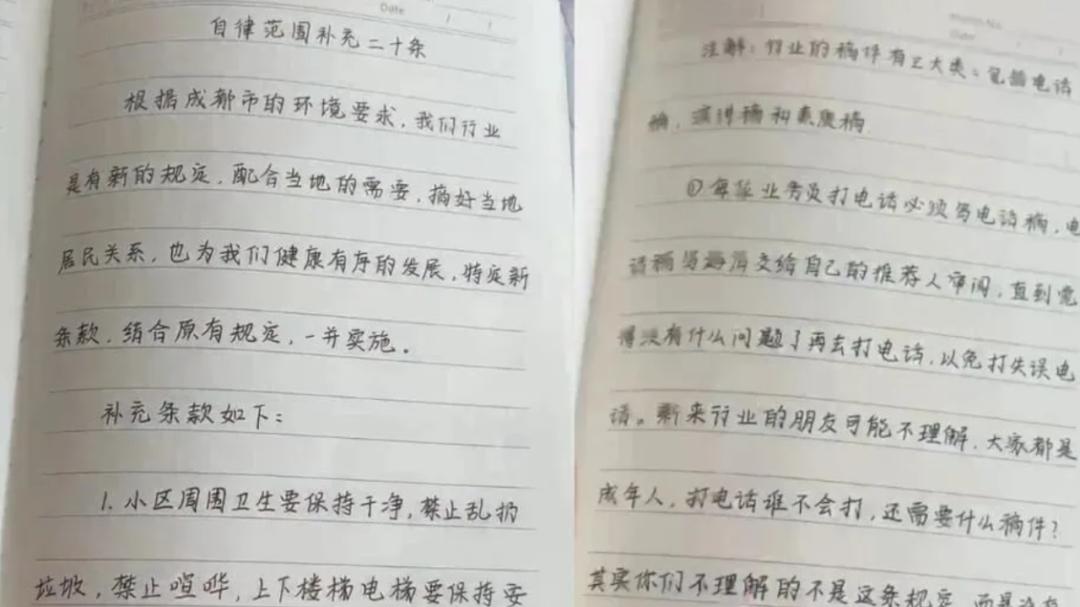 Date
自律范围补充二十条
根据成都市的环境要求,我们行业
是有新的规定,配合当地的需要,搞好当地
居民关系,也为我们健康有序的发展,特定新
条款,结合原有规定,一并实施。
补充条款如下:
1.小区周围卫生要保持干净,禁止乱扔
垃圾,禁止喧哗,上下楼梯电梯要保持安
Date
注解:行业的稿件有三大类:电话
稿,演讲稿和
①每位业务员打电话必须写电话稿,电
话稿写 交给自己的推荐人审阅,直到觉
得没有什么问题了再去打电话,以免打失误电
话。新来行业的朋友可能不理解,大家都是
成年人,打电话谁不会打,还需要什么稿件?
其实你们不理解的不是这条规定,而是没有